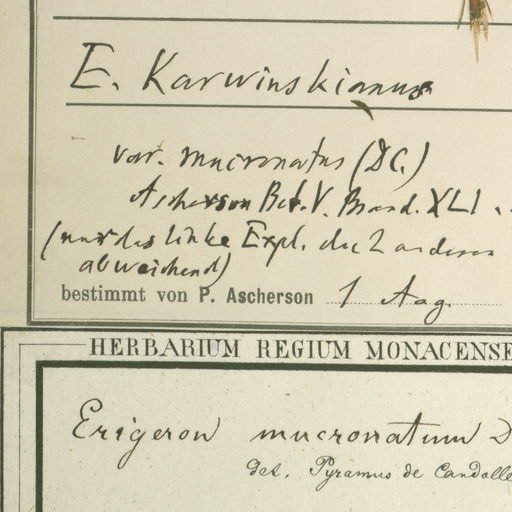 E. Karwinskianus
var. mucronatus (DC.)
Ascherson Bot. V. Brand. XLI.
(nur das linke Expl. die 2 anderen
abweichend)
bestimmt von P. Ascherson 1 Aug.
HERBARIUM REGIUM MONACENSE
Erigeron mucronatum D
det. Pyramus de Candolle